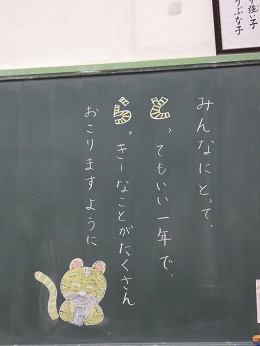 みんなにとって、
とってもいい一年で、
らっきーなことがたくさん
おこりますように